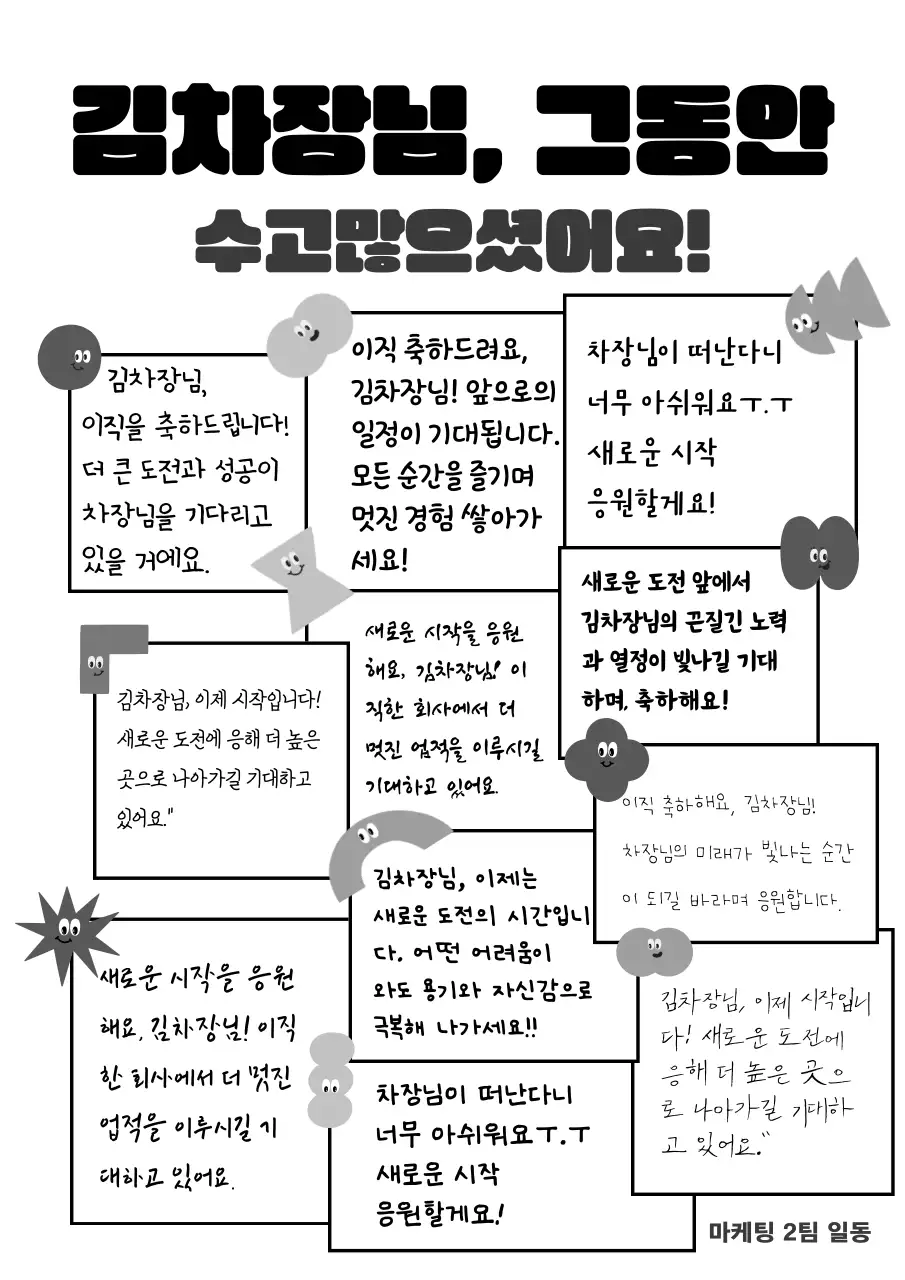 김차장님, 그동안
수고많으셨어요!
김차장님,
이직을 축하드립니다!
더 큰 도전과 성공이
차장님을 기다리고
있을 거예요.
이직 축하드려요,
김차장님! 앞으로의
일정이 기대됩니다.
모든 순간을 즐기며
멋진 경험 쌓아가
세요!
차장님이 떠난다니
너무 아쉬워요ㅜ.ㅜ
새로운 시작
응원할게요!
새로운 도전 앞에서
김차장님의 끈질긴 노력
과 열정이 빛나길 기대
하며, 축하해요!
김차장님, 이제 시작입니다!
새로운 도전에 응해 더 높은
곳으로 나아가길 기대하고
있어요."
새로운 시작을 응원
해요, 김차장님! 이
직한 회사에서 더
멋진 업적을 이루시길
기대하고 있어요.
이직 축하해요, 김차장님!
차장님의 미래가 빛나는 순간
이 되길 바라며 응원합니다.
김차장님, 이제는
새로운 도전의 시간입니
다. 어떤 어려움이
와도 용기와 자신감으로
극복해 나가세요!!
새로운 시작을 응원
해요, 김차장님! 이직
한 회사에서 더 멋진
업적을 이루시길 기
대하고 있어요.
차장님이 떠난다니
너무 아쉬워요ㅜ.ㅜ
새로운 시작
응원할게요!
김차장님, 이제 시작입니
다! 새로운 도전에
응해 더 높은 곳으
로 나아가길 기대하
고 있어요."
마케팅 2팀 일동